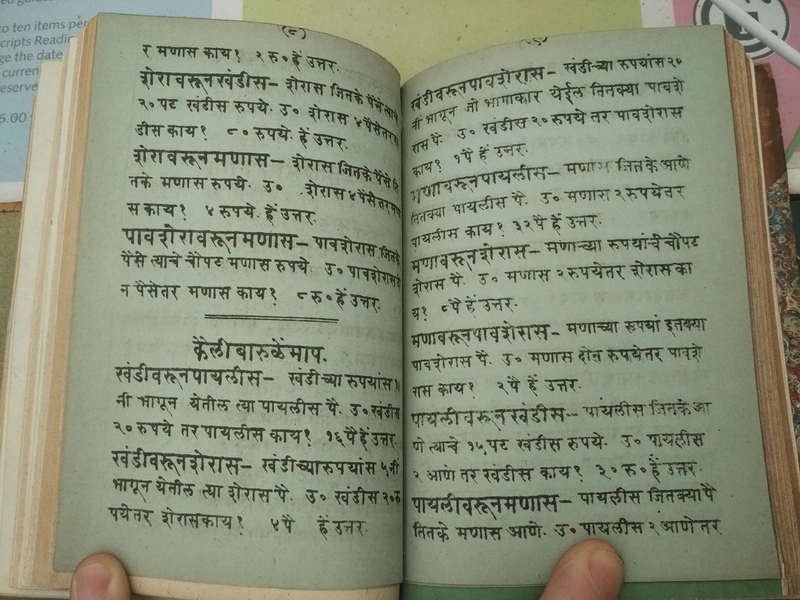 to ten items per
cripts Readi
ge the date
curren
eserve
6.00
(८)
र मणास काय? २ रु० हें उत्तर.
शेरावरूनखंडीस- शेरास जितके पैसे त्याचे
२० पट खंडीस रुपये. उ० शेरास ४ पैसे तर
डीस काय? ८० रुपये. हें उत्तर.
शेरावरूनमणास- शेरास जितके पैसे ति
तके मणास रुपये. उ० शेरास ४ पैसे तर म
स काय? ४ रुपये. हें उत्तर.
पावशेरावरूनमणास- पावशेरास जितके
पैसे त्याचे चौपट मणास रुपये. उ० पावशेरास
न पैसेतर मणास काय? ८ रु० हें उत्तर.
कैलीबारुळेंमाप.
खंडीवरूनपायलीस- खंडीच्या रुपयांस
नी भागून येतील त्या पायलीस पै. उ० खंडीस
२० रुपये तर पायलीस काय? १६ पै हें उत्तर.
खंडीवरूनशेरास- खंडीच्यारुपयांस ५ नी
भागून येतील त्या शेरास पै. उ० खंडीस २० रु
पयेतर शेरासकाय? ४ पै हें उत्तर.
(९)
खंडीवरूनपावशेरास- खंडीच्या रुपयांस २०
नी भागून जो भागाकार येईल तितक्या पावशे
रास पै. उ० खंडीस २० रुपये तर पावशेरास
काय? १ पै हें उत्तर.
मणावरूनपायलीस- मणास जितके आणे
तितक्या पायलीस पै. उ० मणास २ रुपयेतर
पायलीस काय? ३२ पै हें उत्तर.
मणावरूनशेरास- मणाच्या रुपयांचे चौपट
शेरास पै. उ० मणास २ रुपयेतर शेरास का
य? ८ पै हें उत्तर.
मणावरूनपावशेरास- मणाच्या रुपयां इतक्या
पावशेरास पै. उ० मणास दोन रुपयेतर पावशे
रास काय? २ पै हें उत्तर.
पायलीवरूनखंडीस- पायलीस जितके आ
णे त्याचे १५ पट खंडीस रुपये. उ० पायलीस
२ आणे तर खंडीस काय? ३० रु० हें उत्तर.
पायलीवरूनमणास- पायलीस जितक्या पै
तितके मणास आणे. उ० पायलीस २ आणे तर